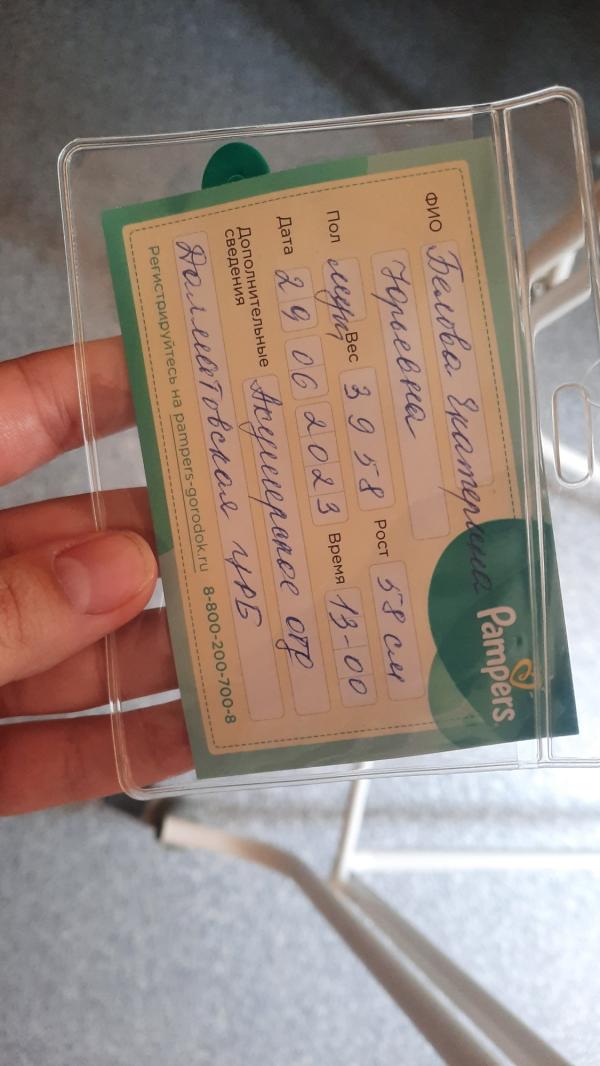 Pampers
ФИО Белова Екатерина
Юрьевна
Пол муж Вес 3958 Рост 58 см
Дата 29 06 2023 Время 13-00
Дополнительные сведения Акушерское отд
Далматовская ЦРБ
Регистрируйтесь на pampers-gorodok.ru 8-800-200-700-8